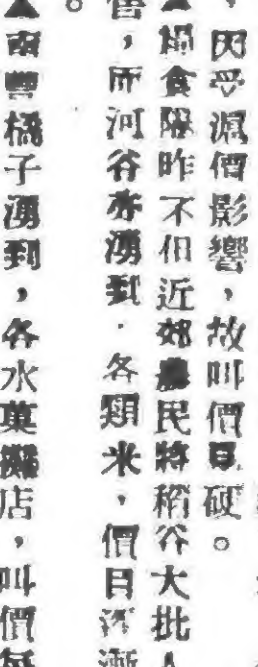 ，因受濕價影響，故叫價⿱硬。
▲糧食隊昨不但近郊農民將稻谷大批
，而河谷亦湧到，各類米，價目漸
▲南豐橘子湧到，各水菓攤店，叫價每